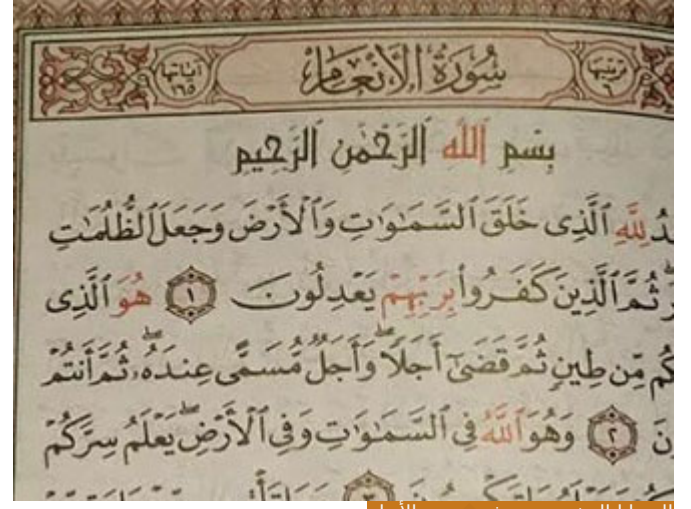 ترتيبها ٦ سُورَةُ الأَنْعَامِ آياتها ١٦٥
بِسْمِ ٱللَّهِ ٱلرَّحْمَٰنِ ٱلرَّحِيمِ
لِلَّهِ ٱلَّذِى خَلَقَ ٱلسَّمَٰوَٰتِ وَٱلْأَرْضَ وَجَعَلَ ٱلظُّلُمَٰتِ
ثُمَّ ٱلَّذِينَ كَفَرُوا۟ بِرَبِّهِمْ يَعْدِلُونَ ١ هُوَ ٱلَّذِى
كُم مِّن طِينٍ ثُمَّ قَضَىٰٓ أَجَلًا ۖ وَأَجَلٌ مُّسَمًّى عِندَهُۥ ۖ ثُمَّ أَنتُمْ
٢ وَهُوَ ٱللَّهُ فِى ٱلسَّمَٰوَٰتِ وَفِى ٱلْأَرْضِ ۖ يَعْلَمُ سِرَّكُمْ